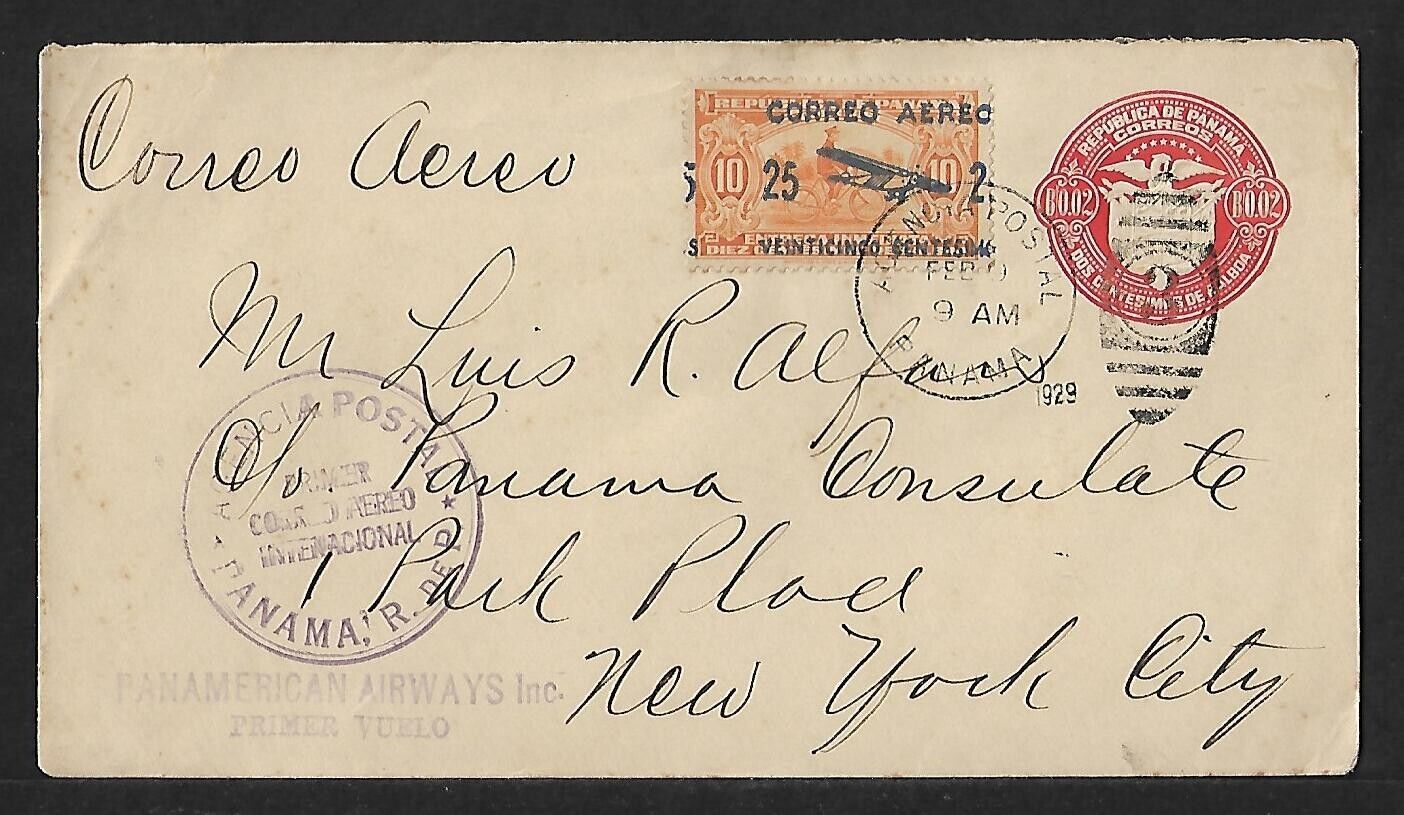 Correo Aereo
REPÚBLICA PA
CORREO AEREO
10 25 10 2
ENTREGA INM
DIEZ
S VEINTICINCO CENTESIM
REPÚBLICA DE PANAMA
CORREOS
B0.02 B0.02
DOS CENTESIMOS DE BALBOA
2
AGENCIA POSTAL
FEB 9
9 AM
PANAMA
1929
Mr Luis R. Alfaro
c/o. Panama Consulate
1 Park Place
New York City
AGENCIA POSTAL
PRIMER
CORREO AEREO
INTENACIONAL
PANAMA, R. DE P.
PANAMERICAN AIRWAYS Inc.
PRIMER VUELO